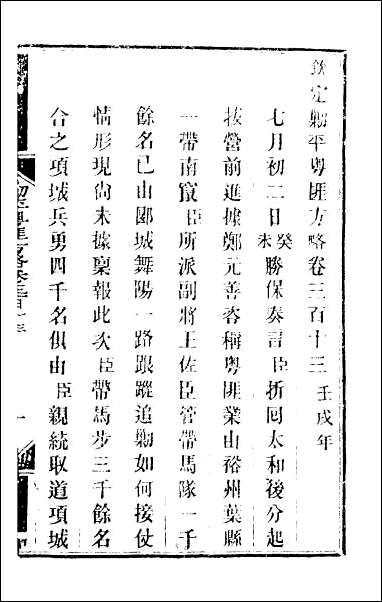 欽定剿平粵匪方略卷三百十三 壬戌年
七月初二日癸未勝保奏言臣折回太和後分起
拔營前進據鄭元善咨稱粵匪業由裕州葉縣
一帶南竄臣所派副將王佐臣管帶馬隊一千
餘名已由郾城舞陽一路跟蹤追剿如何接仗
情形現尚未據稟報此次臣帶馬步三千餘名
合之項城兵勇四千名俱由臣親統取道項城